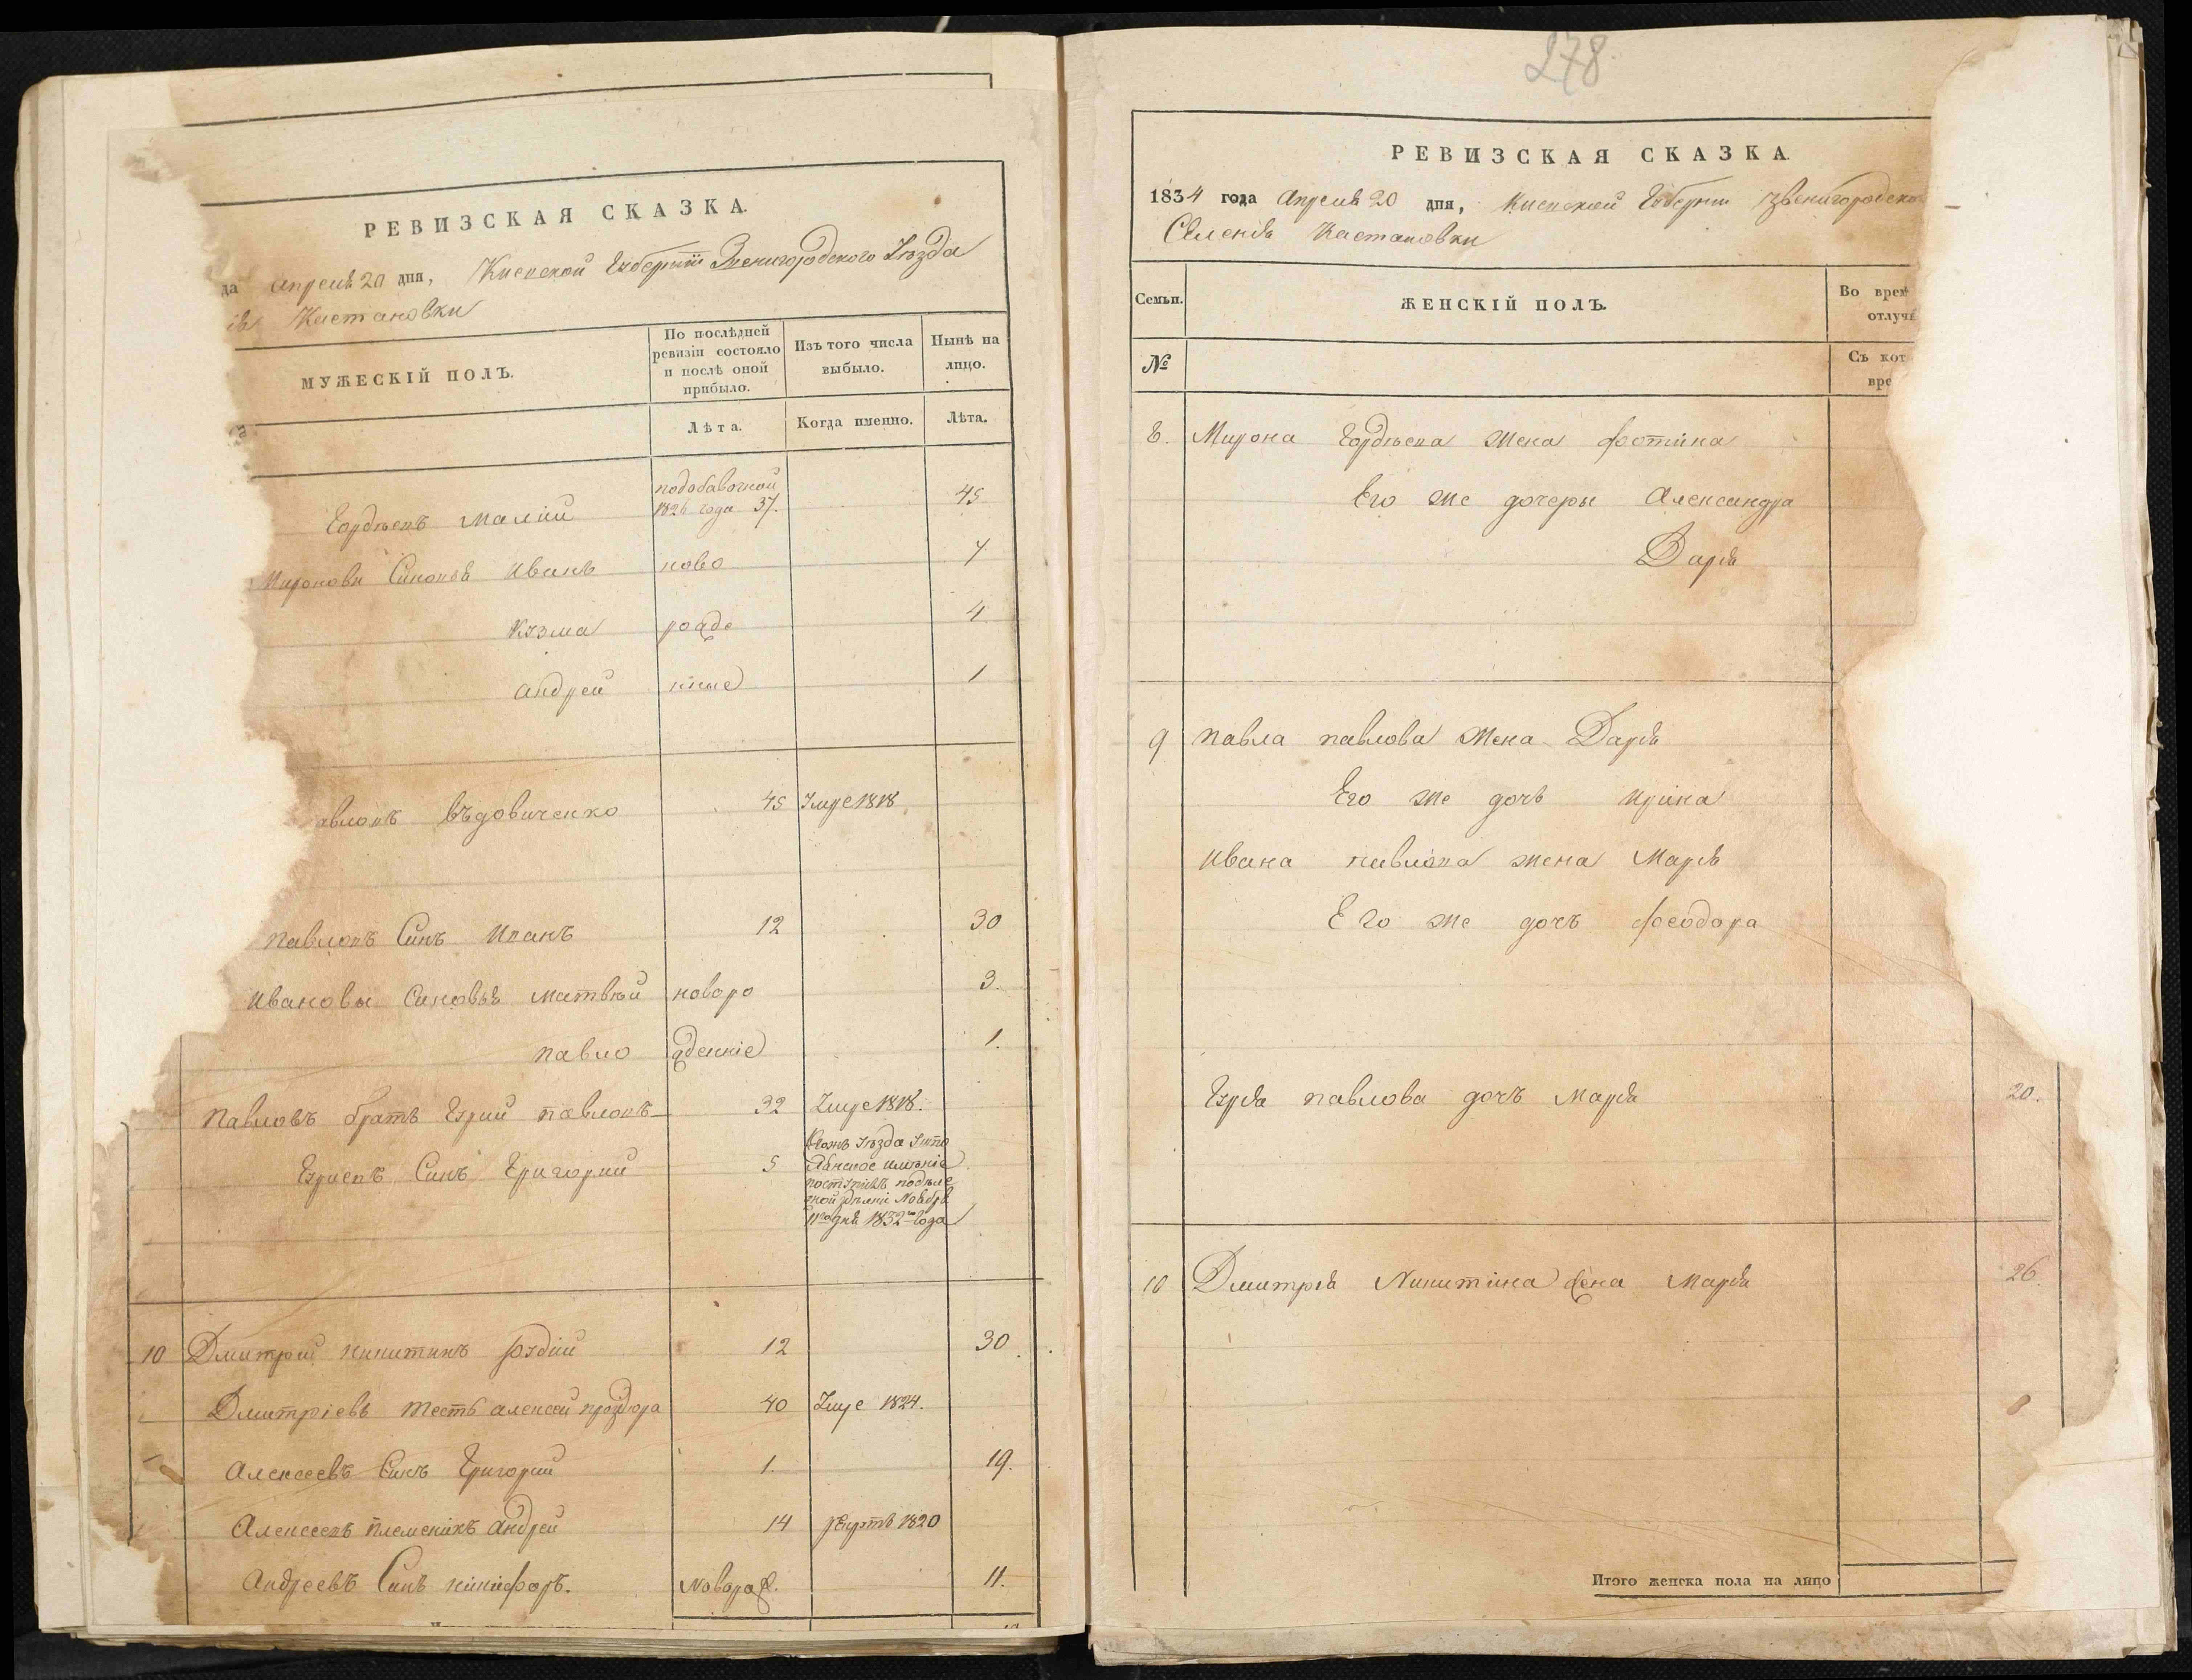 РЕВИЗСКАЯ СКАЗКА.
да апреля 20 дня, Киевской Губернии Звенигородского Уезда
Кастановки
МУЖЕСКІЙ ПОЛЪ.
По послѣдней ревизіи состояло и послѣ оной прибыло.
Изъ того числа выбыло.
Нынѣ на лицо.
Лѣта.
Когда именно.
Лѣта.
Гордѣевъ Малий подобавочной 1826 года 37. 45
Мироновы Синовья Иванъ ново 7
Кузма рожде 4
андрей нные 1
авловъ въдовиченко 45 Умре 1818
Павловъ Синъ Иванъ 12 30
Ивановы Синовья матвѣй новоро 3.
павло жденніе 1.
Павловъ братъ Гурий павловъ 32 Умре 1818.
Гуриевъ Синъ Григорий 5
11го дня 1832го года
10 Дмитрий никитинъ рудий 12 30
Дмитріевъ тесть алексей 40 Умре 1824.
Алексеевъ Синъ Григорий 1. 19.
Алексеевъ племеникъ андрей 14 1820
Андреевъ Синъ никифоръ.Новорож. 11.
278
РЕВИЗСКАЯ СКАЗКА.
1834 года Апреля 20 дня, Киевской Губернии Звенигородско
Селения Кастановки
Семьи.
ЖЕНСКІЙ ПОЛЪ.
Во врем
отлуч
№
Съ кот
вре
8. Мирона Гордѣева жена фотина
Его же дочеры Александра
Даря
9 павла павлова жена Даря
Его же дочь Ирина
Ивана павлова жена Маря
Его же дочъ феодора
Гуря павлова дочъ Маря 20.
10 Дмитрия Никитина жена Маря 26.
Итого женска пола на лицо